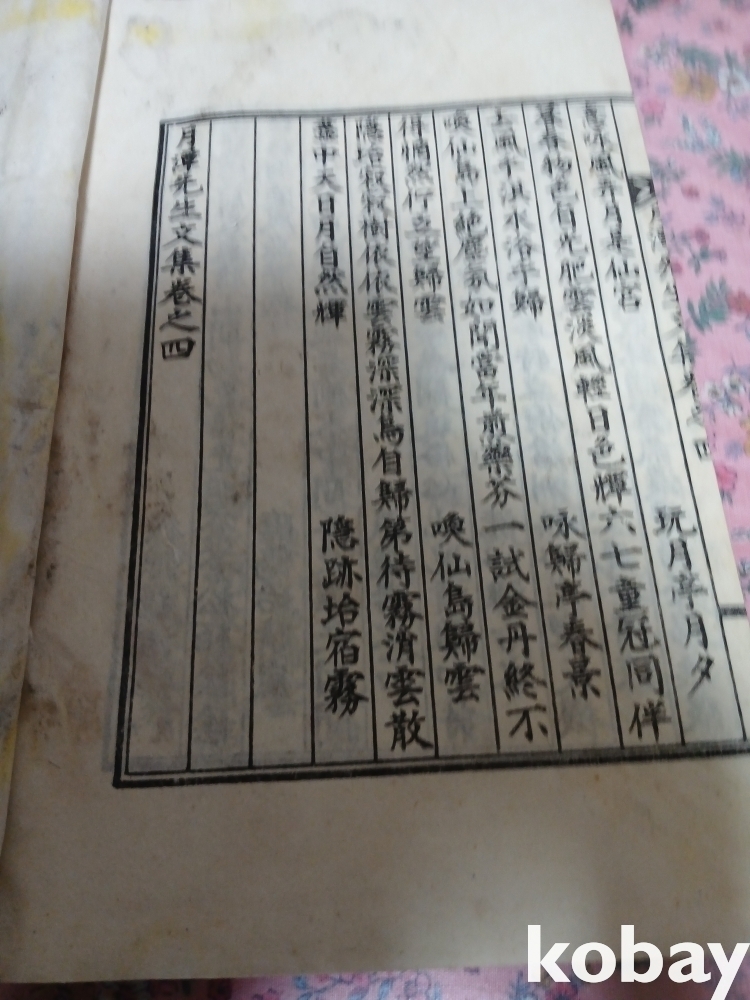 月潭先生文集卷之四
風弄月是仙宮 玩月亭月夕
春物色自先肥雲淡風輕日色輝六七童冠同伴
上風乎淇水浴乎歸 咏歸亭春景
喚仙島上絶塵氛如聞當年煎藥芬一試金丹終不
得惘然行立望歸雲 喚仙島歸雲
隱坮寂寂樹依依雲霧深深鳥自歸第待霧消雲散
盡中天日月自然輝 隱跡坮宿霧
月潭先生文集卷之四
kobay